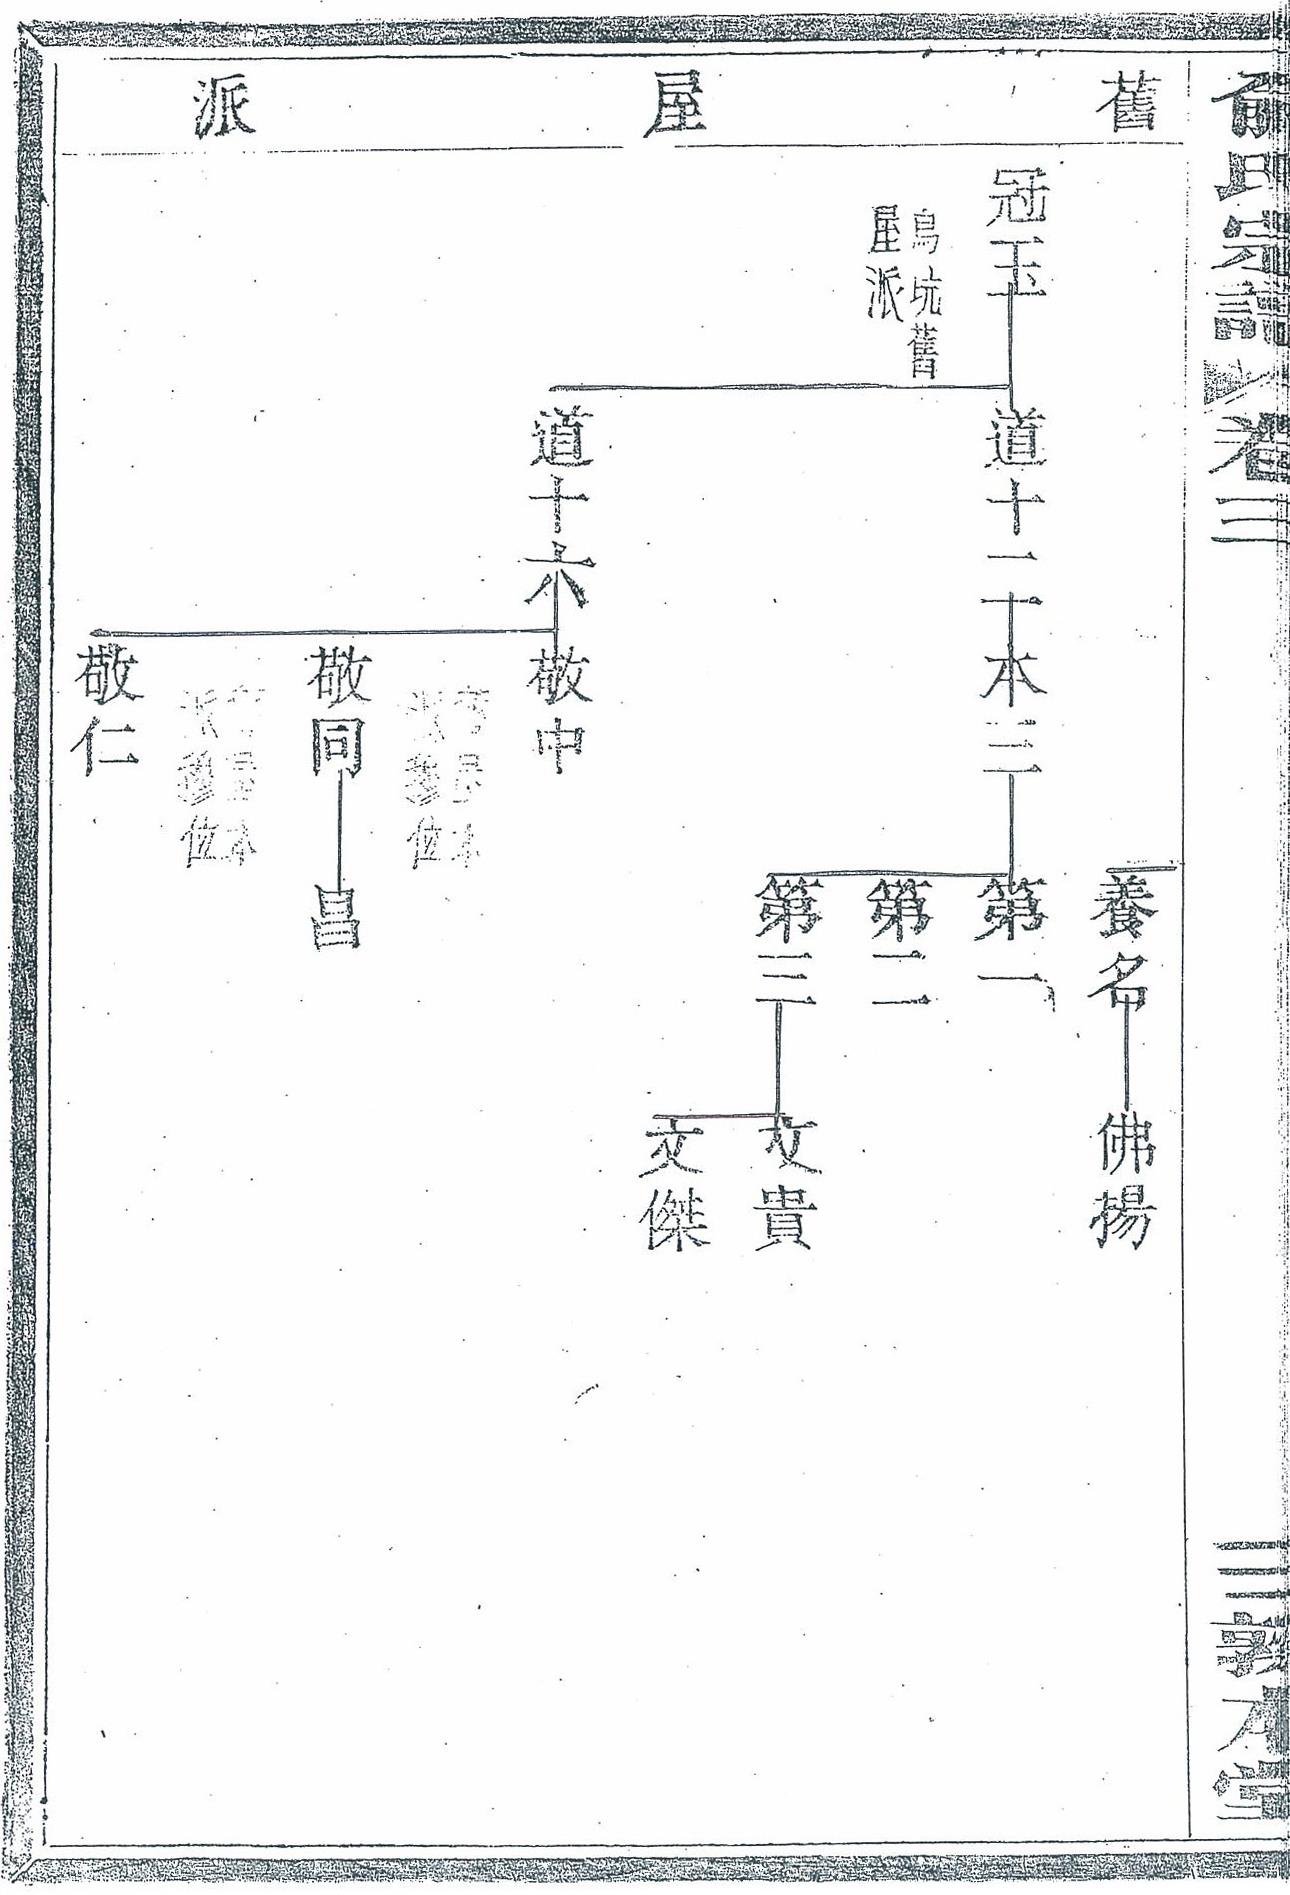 俞氏宗譜
卷三
三
敦本堂
舊屋派
養名
佛揚
冠玉
烏坑舊
屋派
道十一
本三
第一
第二
第三
文貴
文傑
道十六
敬中
敬同
昌
敬仁